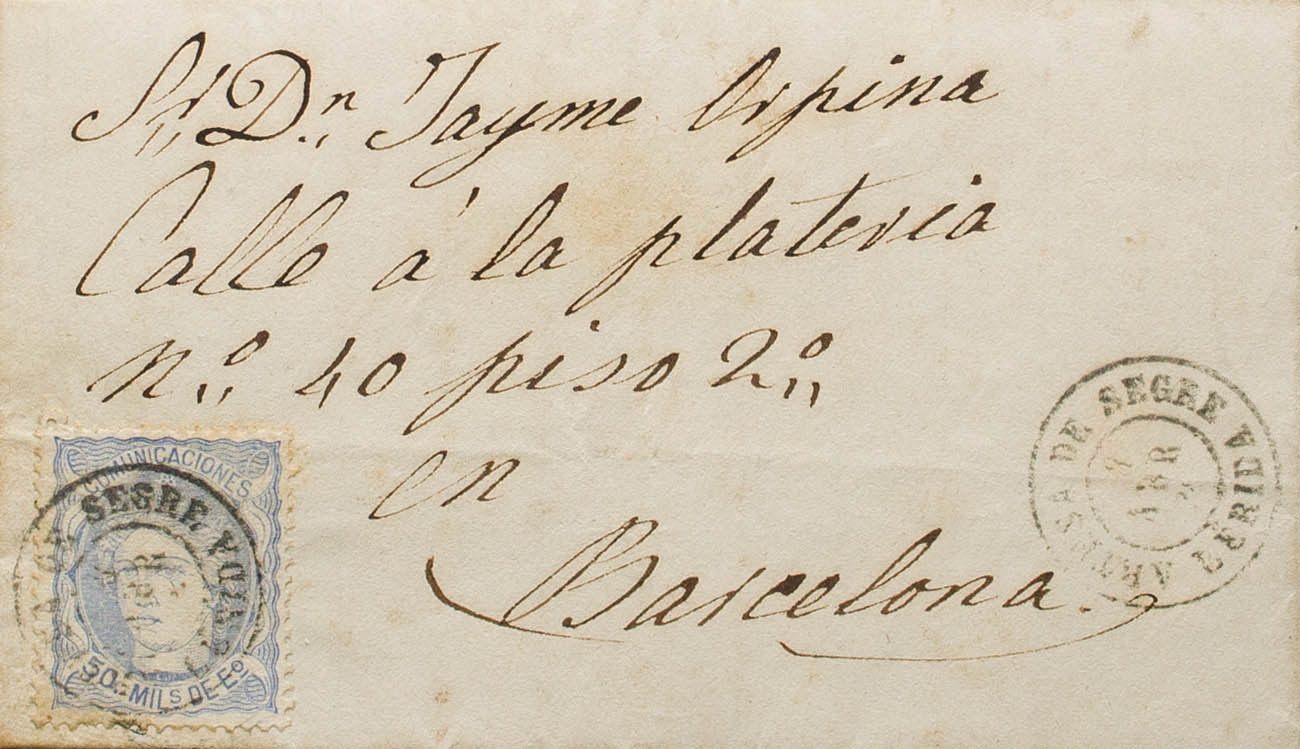 Sr. Dn. Jayme Orpina
Calle á la plateria
n.º 40 piso 2.º
en
Barcelona.
COMUNICACIONES
50 MILS DE Eº
SEGRE
ARTESA DE SEGRE LERIDA
ABR